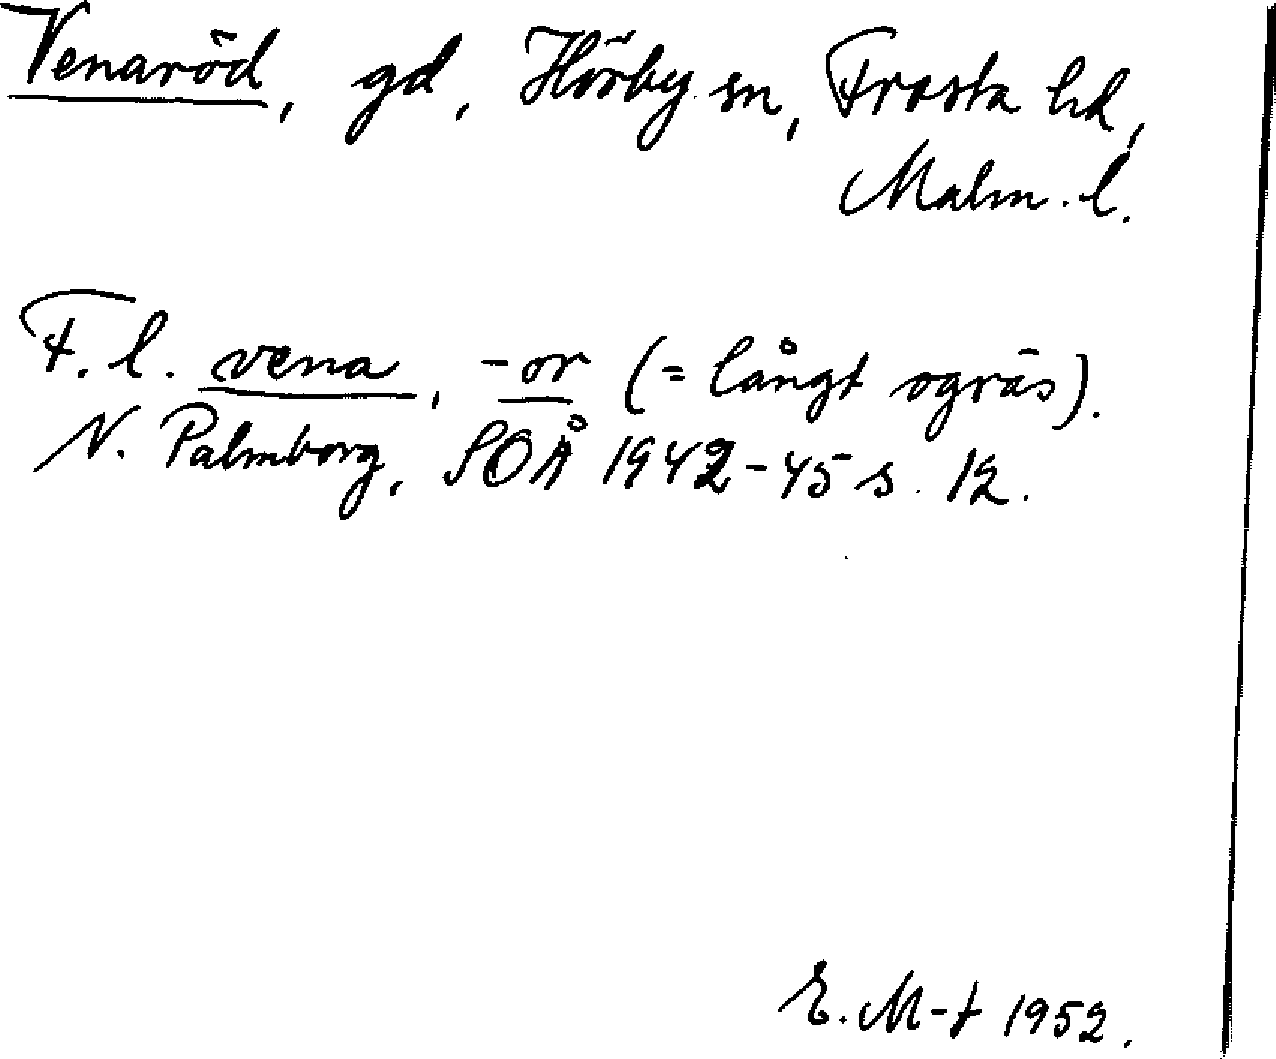 Venaröd, gd, Hörby sn, Frosta hd,
Malm. l.
F. l. vena, -or (= långt ogräs).
N. Palmborg, SOÅ 1942-45 s. 12.
E. M-t 1952.